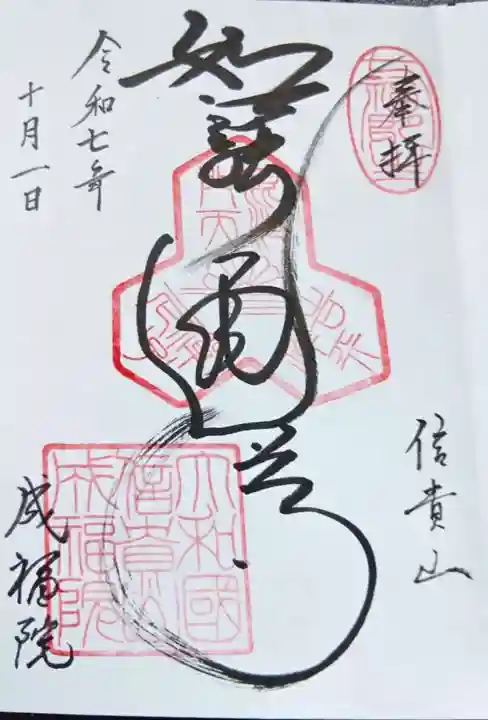 奉拝
信貴山
如意融通尊
令和七年
十月一日
成福院
大和國
信貴山
成福院